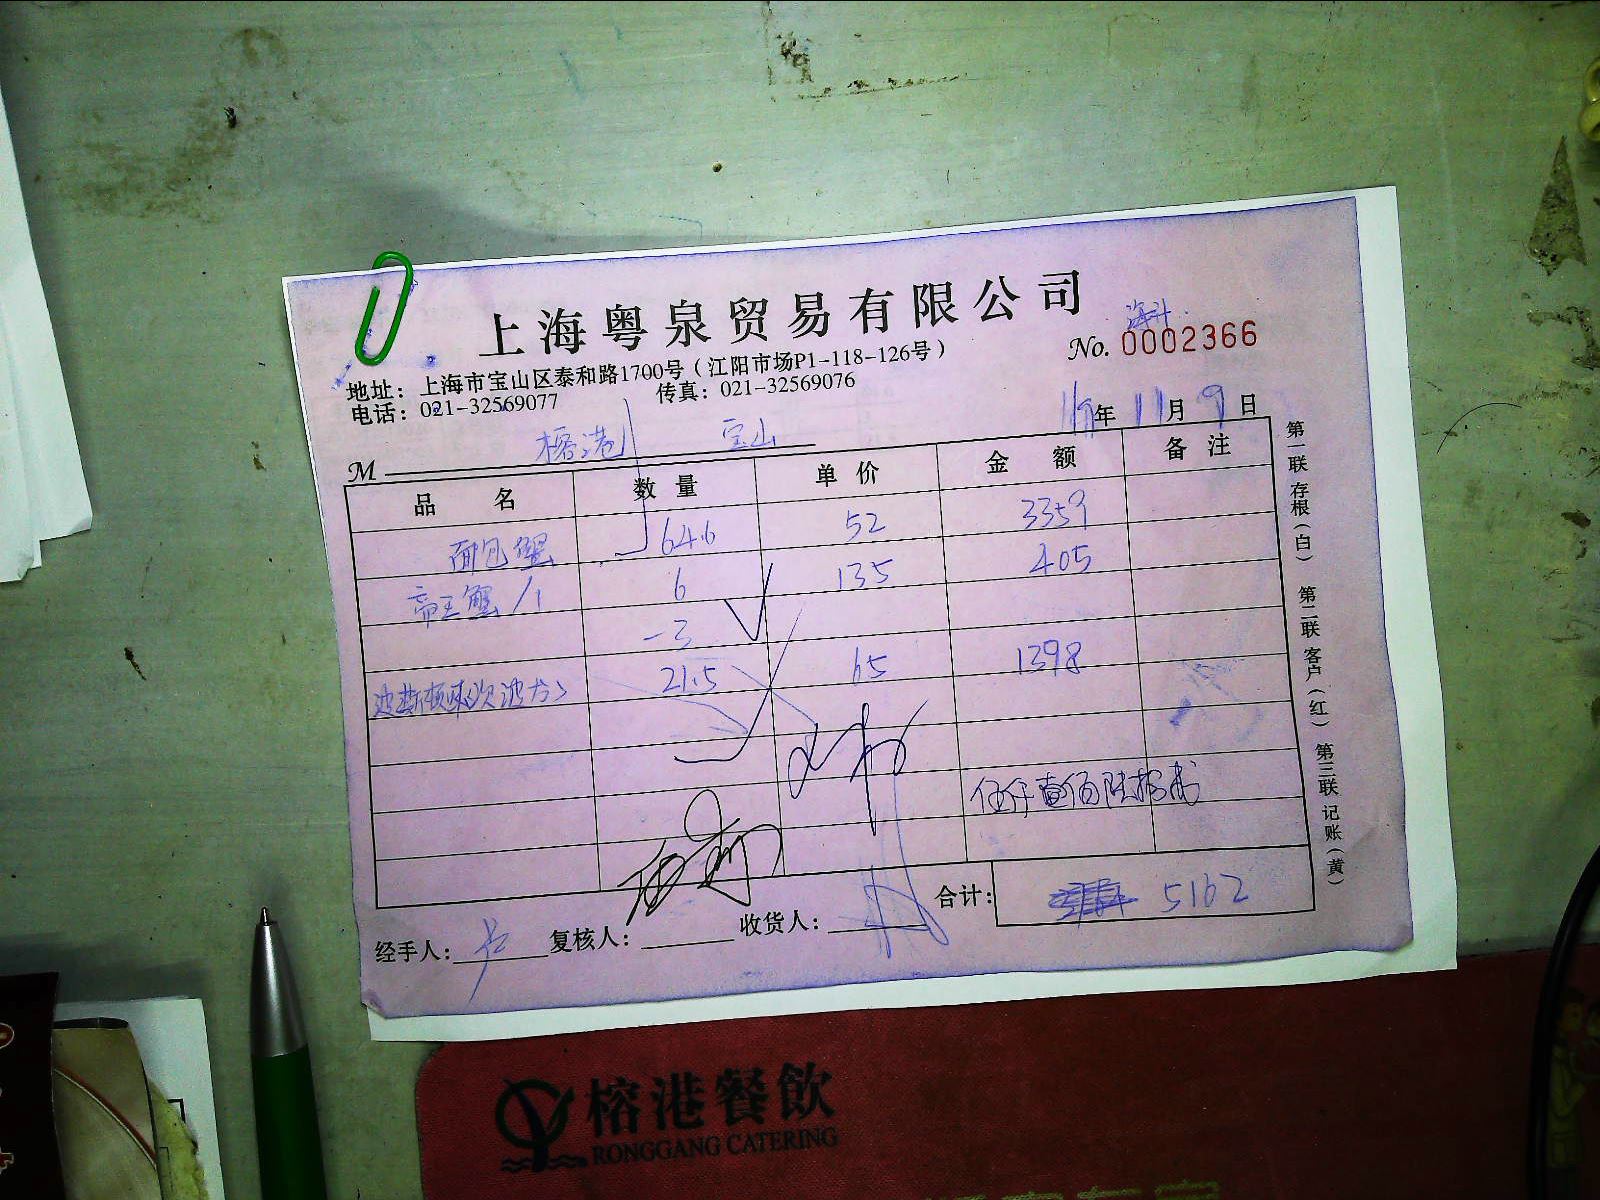 上海粤泉贸易有限公司
No. 0002366
地址：上海市宝山区泰和路1700号（江阳市场P1-118-126号）
电话：021-32569077 传真：021-32569076
19年 11月 9日
M 榕港 宝山
品名 数量 单价 金额 备注
面包蟹 64.6 52 3359
帝王蟹/1 6 135 405
-3
波士顿 21.5 65 1398
伍仟壹佰陆拾
合计： 5162
经手人： 复核人： 收货人：
第一联 存根（白） 第二联 客户（红） 第三联 记账（黄）
榕港餐飲
RONGGANG CATERING